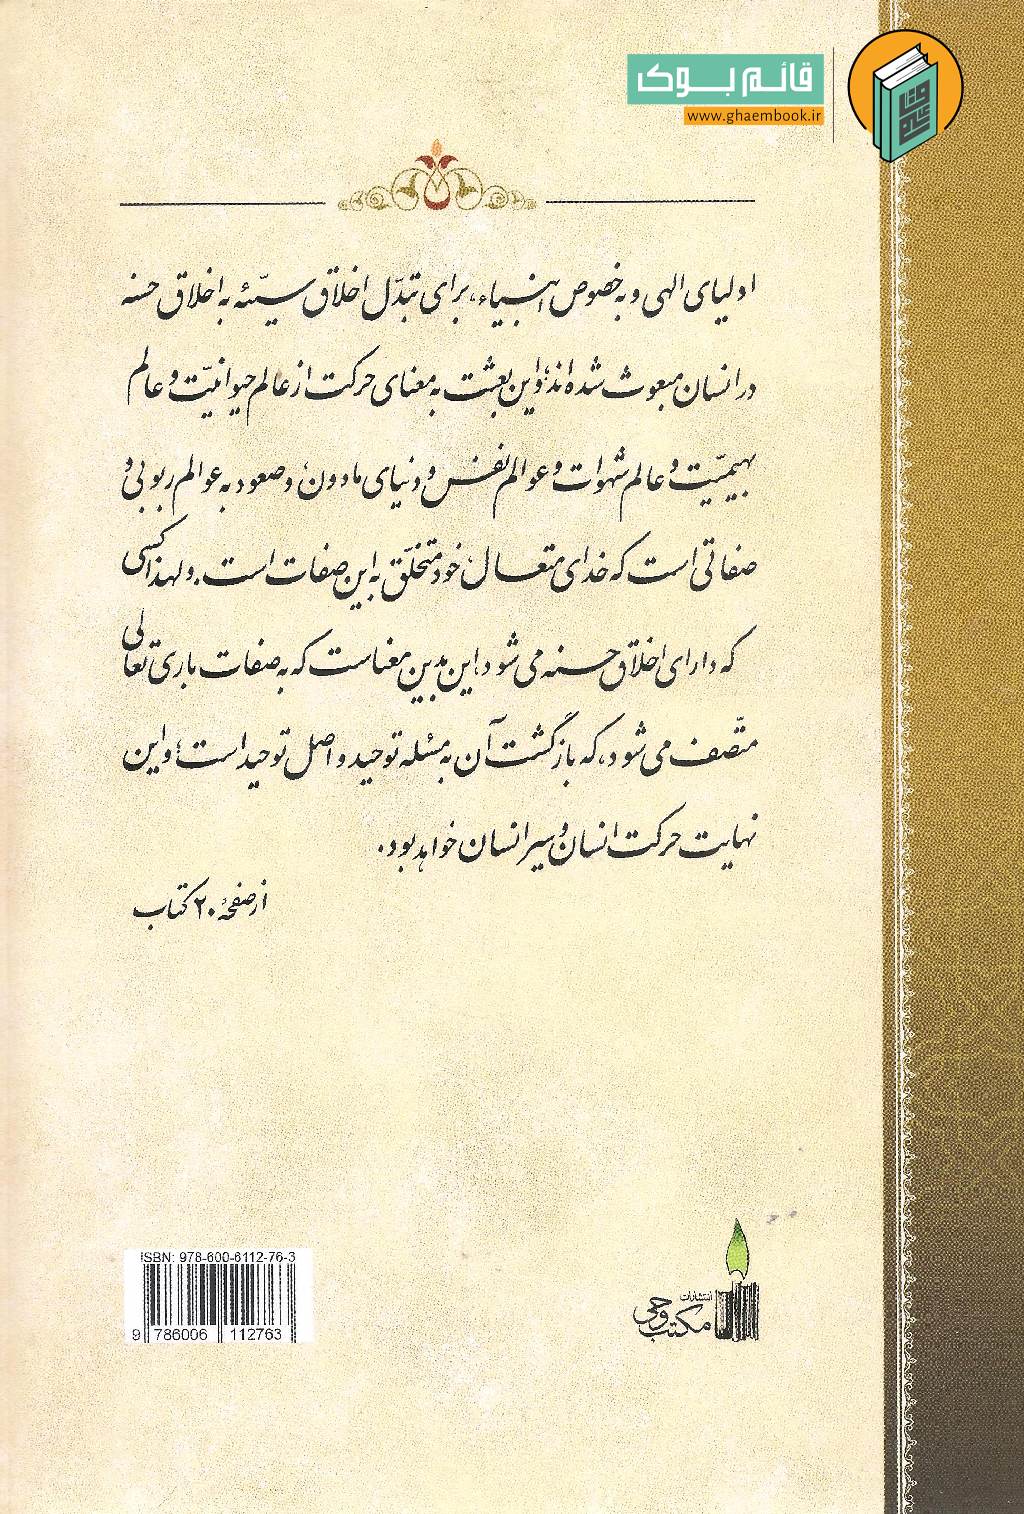 قائم بوک
www.ghaembook.ir
اولیای الهی و به خصوص انبیاء، برای تبدّل اخلاق سیّئه به اخلاق حسنه
در انسان مبعوث شده‌اند؛ و این بعثت به معنای حرکت از عالم حیوانیّت و عالم
بهیمیّت و عالم شهوات و عوالم نفس و دنیای مادون، و صعود به عوالم ربوبی و
صفاتی است که خدای متعال، خود متخلّق به این صفات است. ولهذا کسی
که دارای اخلاق حسنه می‌شود، این بدین معناست که به صفات باری تعالی
متّصف می‌شود، که بازگشت آن به مسئله توحید و اصل توحید است؛ و این
نهایت حرکت انسان و سیر انسان خواهد بود.
از صفحهٔ ۲۰ کتاب
انتشارات
مکتب وحی
ISBN: 978-600-6112-76-3
9 786006 112763